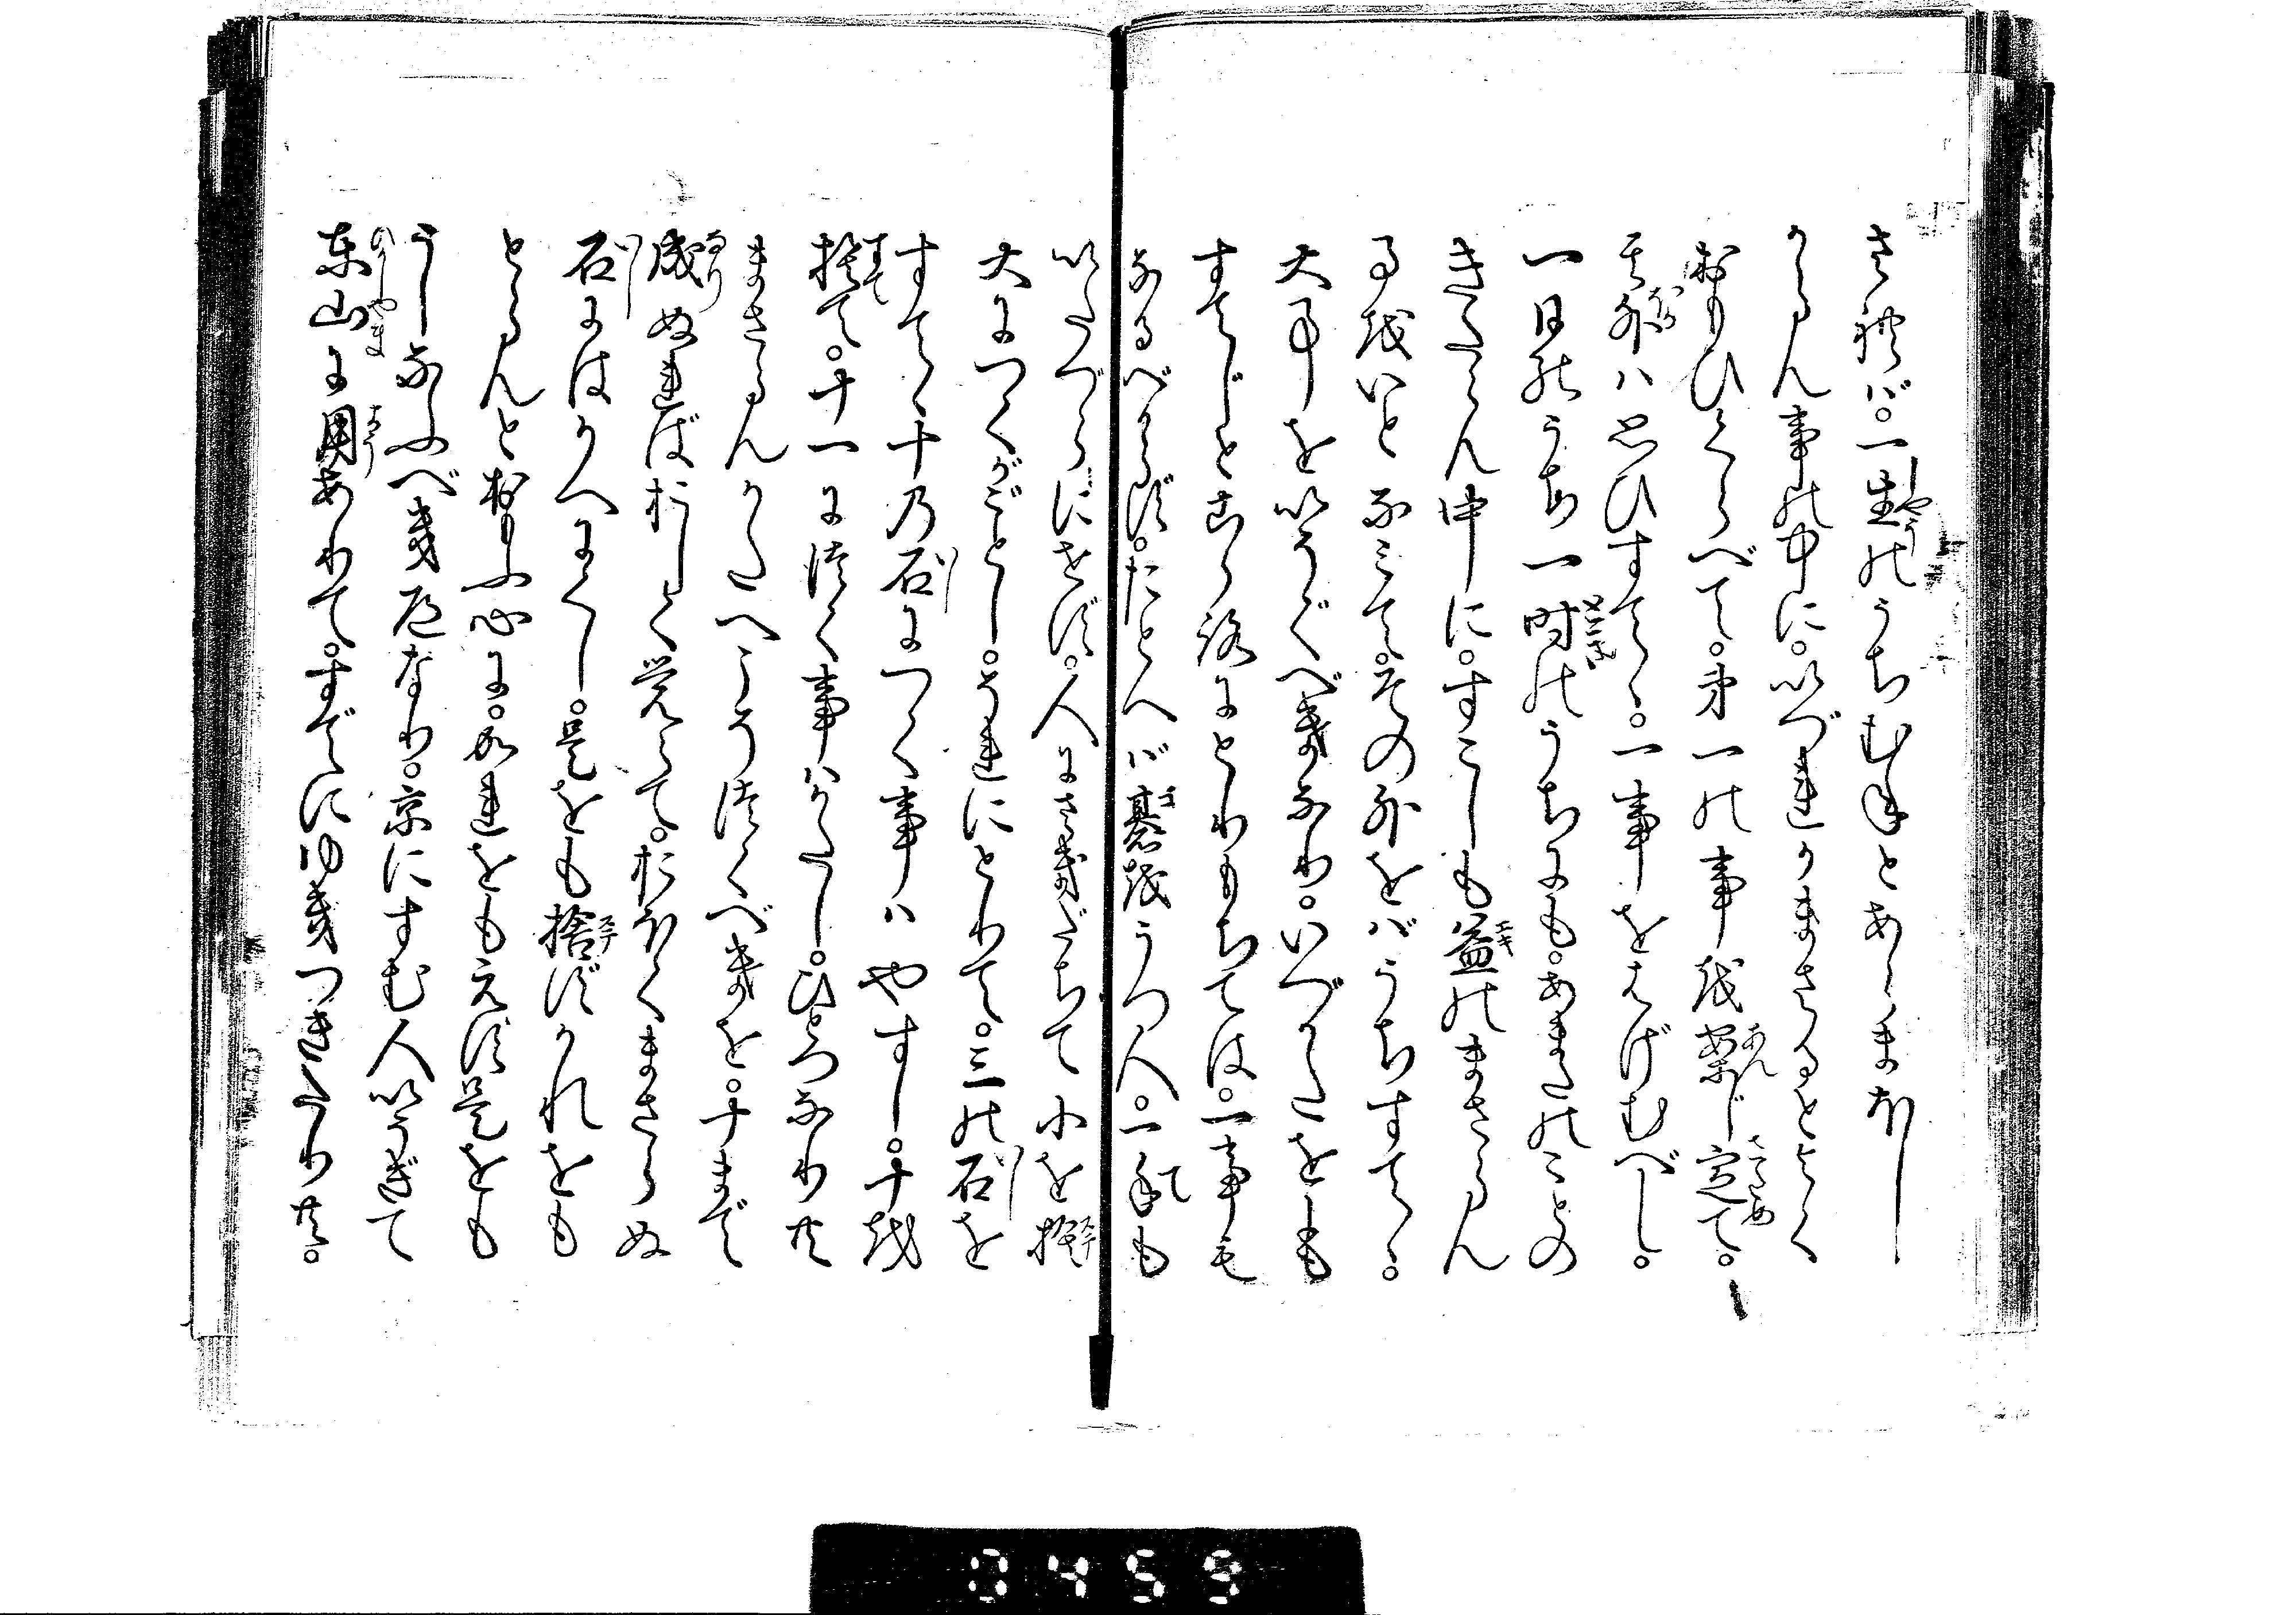 されば。一生のうちむねとあらまほし
からん事の中に。いづれかまさるとよく
おもひくらべて。第一の事を案じ定て。
其外ハ思ひすてゝ。一事をはげむべし。
一日のうち一時のうちにも。あまたのことの
きたらん中に。すこしも益のまさらん
事をいとなみて。その外をばうちすてゝ。
大事をいそぐべきなり。いづかたをも
すてじとこゝろにとりもちては。一事も
なるべからず。たとへバ碁をうつ人。一手も
いたづらにせず。人にさきだちて小を捨
大につくがごとし。それにとりて。三の石を
すてゝ十乃石につく事ハやすし。十を
捨て。十一に付く事ハかたし。ひとつなり共
まさらんかたへこそ付くべきを。十まで
成ぬればおしく覚えて。おほくまさらぬ
石にはかへにくし。是をも捨ずかれをも
とらんとおもふ心に。かれをもえず是をも
うしなふべき道なり。京にすむ人いそぎて
東山に用ありて。すでにゆきつきたり共。
しやう
ほか
あん
さだめ
とき
エキ
ご
て
ステ
いし
いし
すて
なり
いし
ステ
ひがしやま
よう
0459